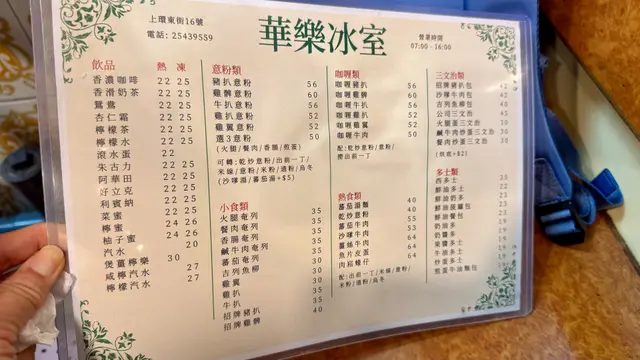 上環東街16號
電話: 25439559
華樂冰室
營業時間
07:00 - 16:00
飲品 熱 凍
香濃咖啡 22 25
香滑奶茶 22 25
鴛鴦 22 25
杏仁霜 22 25
檸檬茶 22 25
檸檬水 22 25
滾水蛋 22
朱古力 22 25
阿華田 22 25
好立克 22 25
利賓納 22 25
菜蜜 22 25
檸蜜 24 26
柚子蜜 24 26
汽水 20
煲薑檸樂 30
咸檸汽水 27
檸檬汽水 27
意粉類
豬扒意粉 56
雞髀意粉 60
牛扒意粉 56
雞扒意粉 52
雞翼意粉 52
選3意粉 50
(火腿/餐肉/香腸/煎蛋)
可轉:乾炒意粉/出前一丁/
米線/意粉/米粉/通粉/烏冬
(沙嗲湯/蕃茄湯+$5)
小食類
火腿奄列 35
餐肉奄列 35
香腸奄列 35
鹹牛肉奄列 35
蕃茄奄列 30
吉列魚柳 30
雞翼 30
雞扒 35
牛扒 35
招牌豬扒 35
招牌雞髀 40
咖喱類
咖喱豬扒 56
咖喱雞髀 60
咖喱牛扒 56
咖喱雞扒 52
咖喱雞翼 52
咖喱牛肉 50
配:乾炒意粉/
撈出前一丁
熱食類
蕃茄湯麵
乾炒意粉 55
蕃茄牛肉 53
沙嗲牛肉 64
薑絲牛肉 64
魚片皮蛋 64
肉崧蠔仔
三文治類
招牌豬扒包 42
沙嗲牛肉包 42
吉列魚柳包 40
公司三文治 45
火腿蛋三文治
鹹牛肉炒蛋三文治 30
餐肉炒蛋三文治 30
(烘底+$2)
多士類
西多士
鮮油多士
鮮油奶多
鮮油菠蘿包
鮮油餐包
奶油多
奶醬多
果醬多士
牛油多士
炒蛋多士
煎蛋牛油麵包